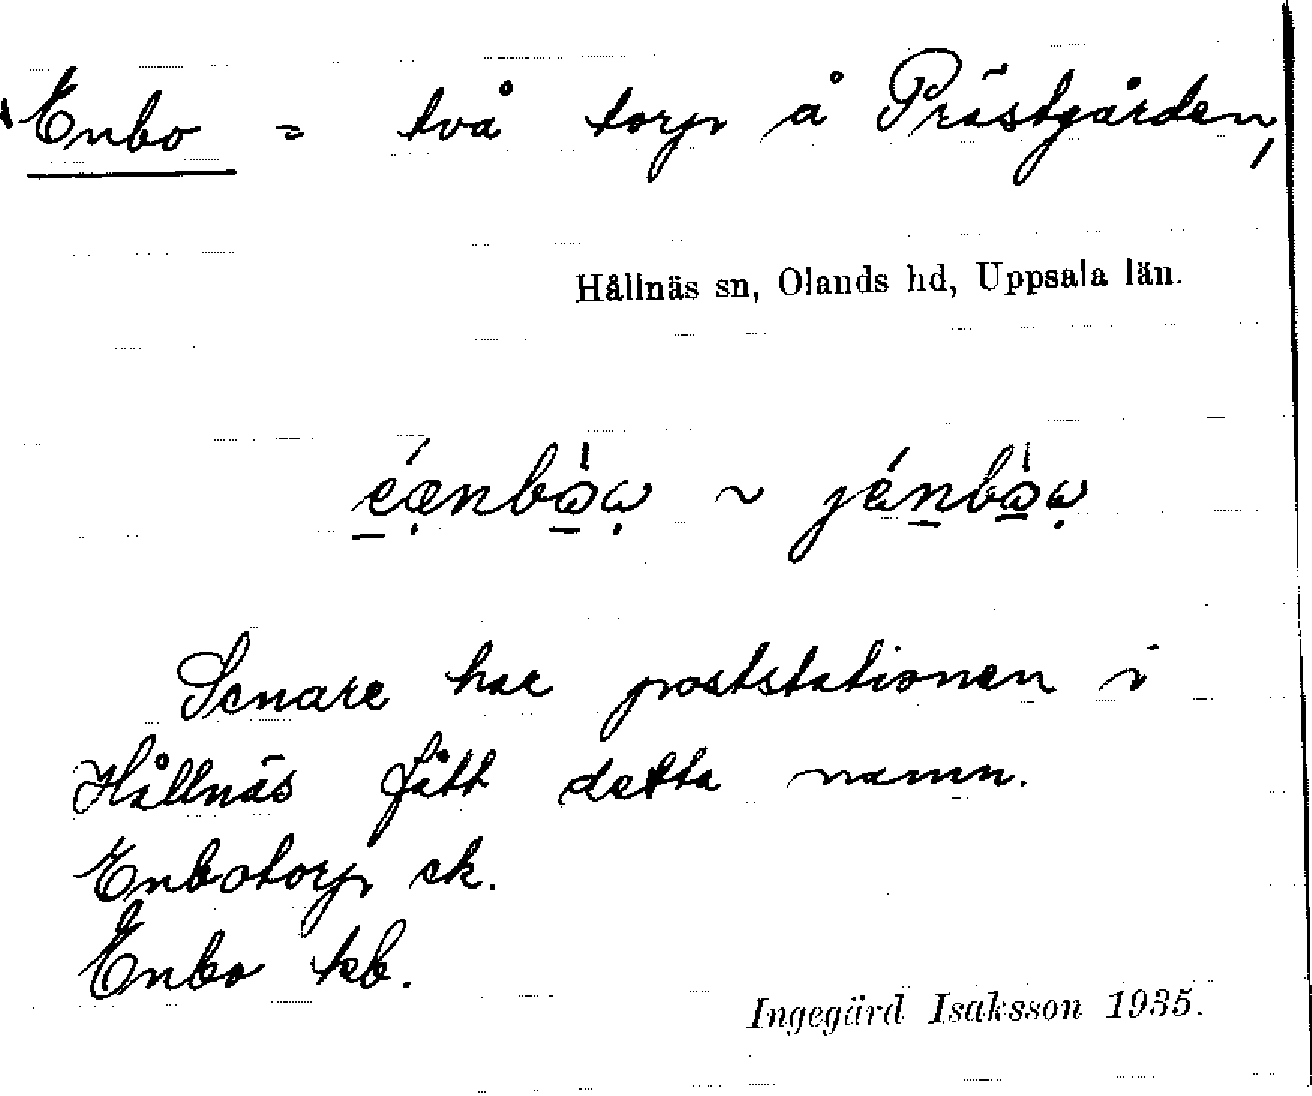 Enbo = två torp å Prästgården,
Hållnäs sn, Olands hd, Uppsala län.
éænbòω ~ jénbòω
Senare har poststationen i
Hållnäs fått detta namn.
Enbotorp ek.
Enbo kb.
Ingegärd Isaksson 1935.